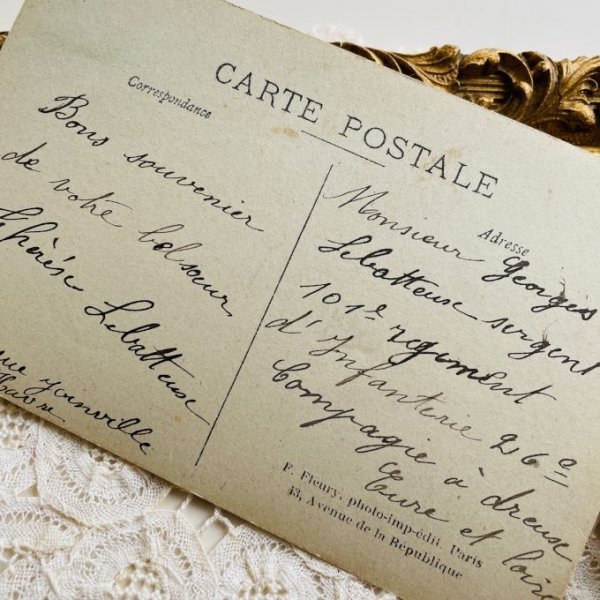 CARTE POSTALE
Correspondance
Bons souvenier
de votre belsœur
Thérèse Lebatteuse
rue Joinville
Havre
Adresse
Monsieur Georges
Lebatteuse sergent
101e regiment
d'Infanterie 26e
Compagie à dreuse
Eure et loire
F. Fleury, photo-imp-édit, Paris
43, Avenue de la République